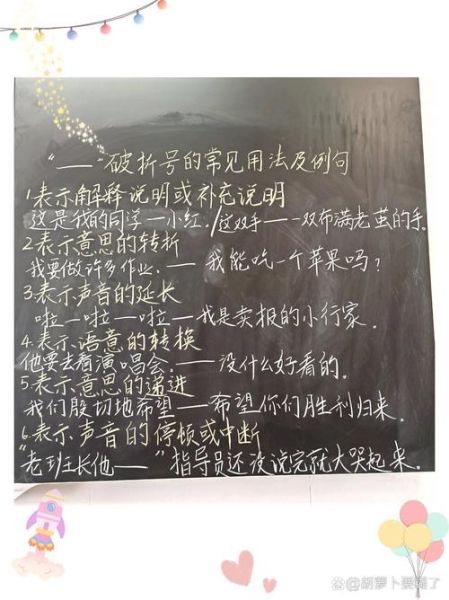 “——”破折号的常见用法及例句
1.表示解释说明或补充说明
这是我的同学—小红./这双手——一双布满老茧的手.
2.表示意思的转折
我要做许多作业.——我能吃一个苹果吗？
3.表示声音的延长
啦—啦—啦—我是卖报的小行家.
4.表示语意的转换
他要去看演唱会.——没什么好看的.
5.表示意思的递进
我们殷切地希望——希望你们胜利归来.
6.表示声音的停顿或中断
“老班长他——”指导员还没说完就大哭起来.